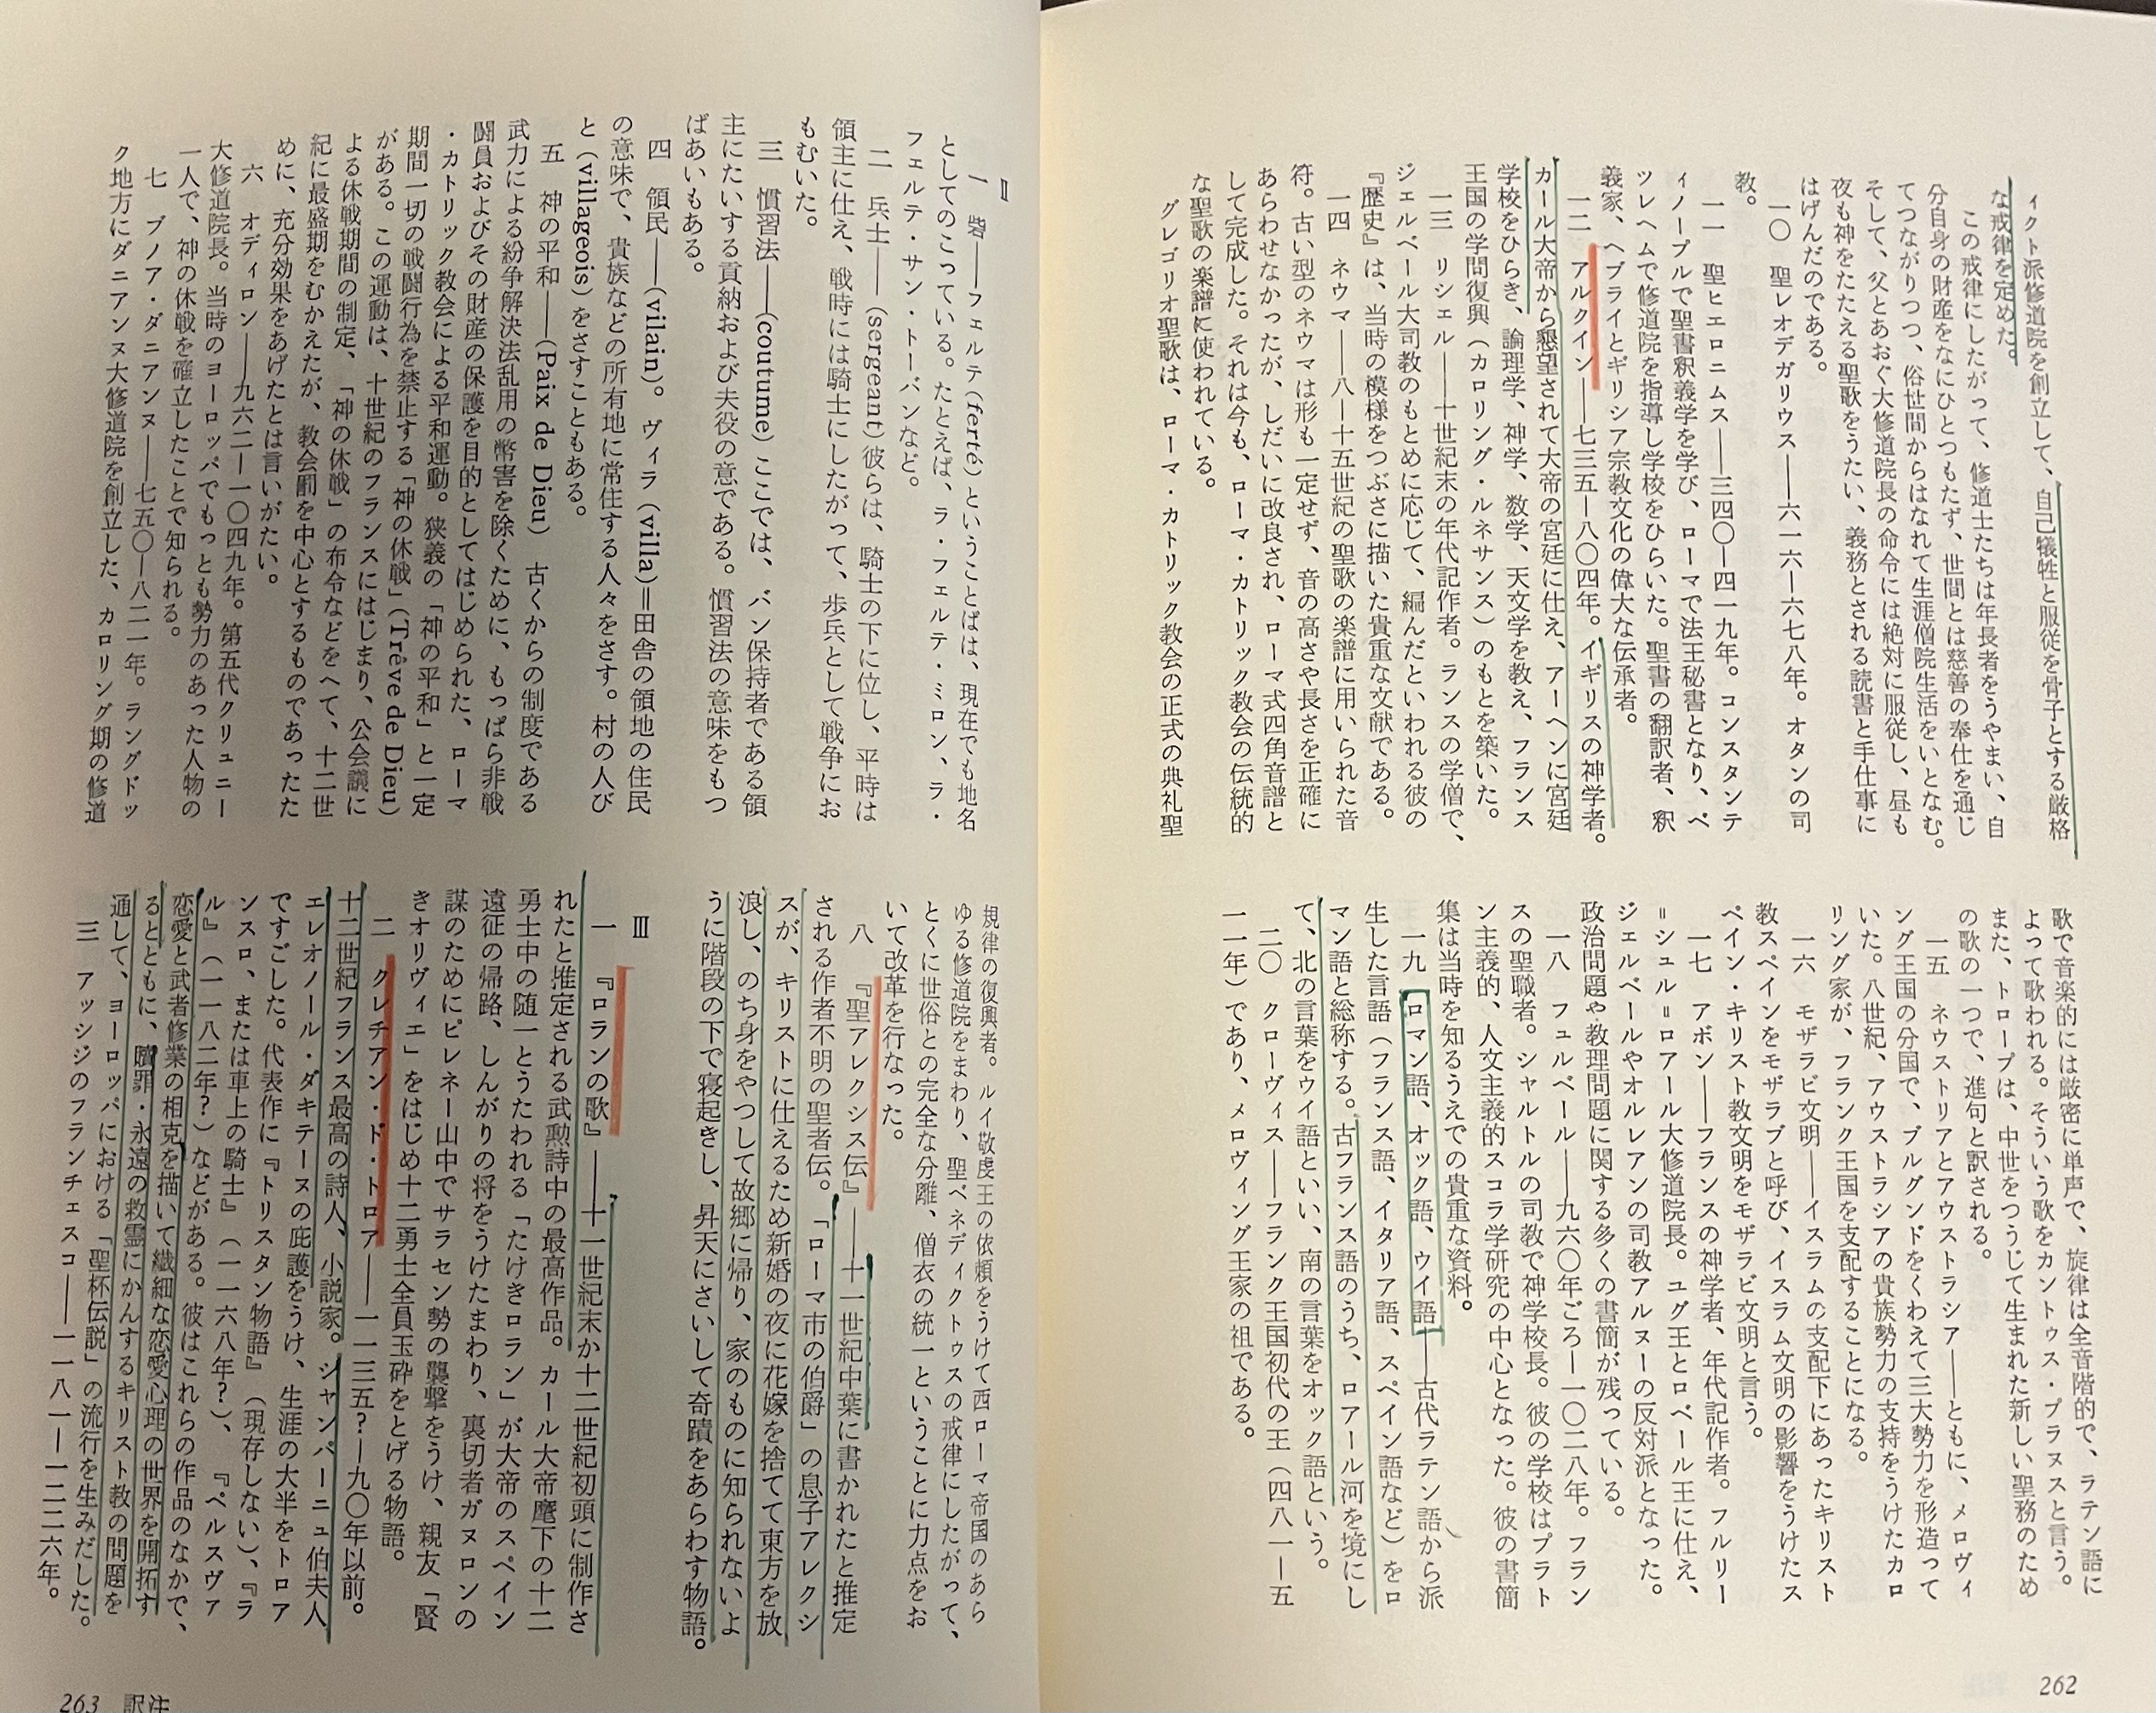 ィクト派修道院を創立して、自己犠牲と服従を骨子とする厳格
な戒律を定めた。
この戒律にしたがって、修道士たちは年長者をうやまい、自
分自身の財産をなにひとつもたず、世間とは慈善の奉仕を通じ
てつながりつつ、俗世間からはなれて生涯僧院生活をいとなむ。
そして、父とあおぐ大修道院長の命令には絶対に服従し、昼も
夜も神をたたえる聖歌をうたい、義務とされる読書と手仕事に
はげんだのである。
一〇 聖レオデガリウス――六一六―六七八年。オタンの司
教。
一一 聖ヒエロニムス――三四〇―四一九年。コンスタンテ
ィノープルで聖書釈義学を学び、ローマで法王秘書となり、ベ
ツレヘムで修道院を指導し学校をひらいた。聖書の翻訳者、釈
義家、ヘブライとギリシア宗教文化の偉大な伝承者。
一二 アルクイン――七三五―八〇四年。イギリスの神学者。
カール大帝から懇望されて大帝の宮廷に仕え、アーヘンに宮廷
学校をひらき、論理学、神学、数学、天文学を教え、フランス
王国の学問復興（カロリング・ルネサンス）のもとを築いた。
一三 リシェル――十世紀末の年代記作者。ランスの学僧で、
ジェルベール大司教のもとめに応じて、編んだといわれる彼の
『歴史』は、当時の模様をつぶさに描いた貴重な文献である。
一四 ネウマ――八―十五世紀の聖歌の楽譜に用いられた音
符。古い型のネウマは形も一定せず、音の高さや長さを正確に
あらわせなかったが、しだいに改良され、ローマ式四角音譜と
して完成した。それは今も、ローマ・カトリック教会の伝統的
な聖歌の楽譜に使われている。
グレゴリオ聖歌は、ローマ・カトリック教会の正式の典礼聖
歌で音楽的には厳密に単声で、旋律は全音階的で、ラテン語に
よって歌われる。そういう歌をカントゥス・プラヌスと言う。
また、トロープは、中世をつうじて生まれた新しい聖務のため
の歌の一つで、進句と訳される。
一五 ネウストリアとアウストラシア――ともに、メロヴィ
ング王国の分国で、ブルグンドをくわえて三大勢力を形造って
いた。八世紀、アウストラシアの貴族勢力の支持をうけたカロ
リング家が、フランク王国を支配することになる。
一六 モザラビ文明――イスラムの支配下にあったキリスト
教スペインをモザラブと呼び、イスラム文明の影響をうけたス
ペイン・キリスト教文明をモザラビ文明と言う。
一七 アボン――フランスの神学者、年代記作者。フルリー
＝シュル＝ロアール大修道院長。ユグ王とロベール王に仕え、
ジェルベールやオルレアンの司教アルヌーの反対派となった。
政治問題や教理問題に関する多くの書簡が残っている。
一八 フュルベール――九六〇年ごろ―一〇二八年。フラン
スの聖職者。シャルトルの司教で神学校長。彼の学校はプラト
ン主義的、人文主義的スコラ学研究の中心となった。彼の書簡
集は当時を知るうえでの貴重な資料。
一九 ロマン語、オック語、ウイ語――古代ラテン語から派
生した言語（フランス語、イタリア語、スペイン語など）をロ
マン語と総称する。古フランス語のうち、ロアール河を境にし
て、北の言葉をウイ語といい、南の言葉をオック語という。
二〇 クローヴィス――フランク王国初代の王（四八一―五
一一年）であり、メロヴィング王家の祖である。
262
Ⅱ
一 砦――フェルテ(ferté)ということばは、現在でも地名
としてのこっている。たとえば、ラ・フェルテ・ミロン、ラ・
フェルテ・サン・トーバンなど。
二 兵士――(sergeant)彼らは、騎士の下に位し、平時は
領主に仕え、戦時には騎士にしたがって、歩兵として戦争にお
もむいた。
三 慣習法――(coutume)ここでは、バン保持者である領
主にたいする貢納および夫役の意である。慣習法の意味をもつ
ばあいもある。
四 領民――(vilain)。ヴィラ(villa)＝田舎の領地の住民
の意味で、貴族などの所有地に常住する人々をさす。村の人び
と(villageois)をさすこともある。
五 神の平和――(Paix de Dieu) 古くからの制度である
武力による紛争解決法乱用の幣害を除くために、もっぱら非戦
闘員およびその財産の保護を目的としてはじめられた、ローマ
・カトリック教会による平和運動。狭義の「神の平和」と一定
期間一切の戦闘行為を禁止する「神の休戦」(Trêve de Dieu)
がある。この運動は、十世紀のフランスにはじまり、公会議に
よる休戦期間の制定、「神の休戦」の布令などをへて、十二世
紀に最盛期をむかえたが、教会罰を中心とするものであったた
めに、充分効果をあげたとは言いがたい。
六 オディロン――九六二―一〇四九年。第五代クリュニー
大修道院長。当時のヨーロッパでもっとも勢力のあった人物の
一人で、神の休戦を確立したことで知られる。
七 ブノア・ダニアンヌ――七五〇―八二一年。ラングドッ
ク地方にダニアンヌ大修道院を創立した、カロリング期の修道
規律の復興者。ルイ敬虔王の依頼をうけて西ローマ帝国のあら
ゆる修道院をまわり、聖ベネディクトゥスの戒律にしたがって、
とくに世俗との完全な分離、僧衣の統一ということに力点をお
いて改革を行なった。
八 『聖アレクシス伝』――十一世紀中葉に書かれたと推定
される作者不明の聖者伝。「ローマ市の伯爵」の息子アレクシ
スが、キリストに仕えるため新婚の夜に花嫁を捨てて東方を放
浪し、のち身をやつして故郷に帰り、家のものに知られないよ
うに階段の下で寝起きし、昇天にさいして奇蹟をあらわす物語。
Ⅲ
一 『ロランの歌』――十一世紀末か十二世紀初頭に制作さ
れたと推定される武勲詩中の最高作品。カール大帝麾下の十二
勇士中の随一とうたわれる「たけきロラン」が大帝のスペイン
遠征の帰路、しんがりの将をうけたまわり、裏切者ガヌロンの
謀のためにピレネー山中でサラセン勢の襲撃をうけ、親友「賢
きオリヴィエ」をはじめ十二勇士全員玉砕をとげる物語。
二 クレチアン・ド・トロア――一一三五？―九〇年以前。
十二世紀フランス最高の詩人、小説家。シャンパーニュ伯夫人
エレオノール・ダキテーヌの庇護をうけ、生涯の大半をトロア
ですごした。代表作に『トリスタン物語』（現存しない）、『ラ
ンスロ、または車上の騎士』（一一六八年？）、『ペルスヴァ
ル』（一一八二年？）などがある。彼はこれらの作品のなかで、
恋愛と武者修業の相克を描いて繊細な恋愛心理の世界を開拓す
るとともに、贖罪・永遠の救霊にかんするキリスト教の問題を
通して、ヨーロッパにおける「聖杯伝説」の流行を生みだした。
三 アッシジのフランチェスコ――一一八一―一二二六年。
263 訳注